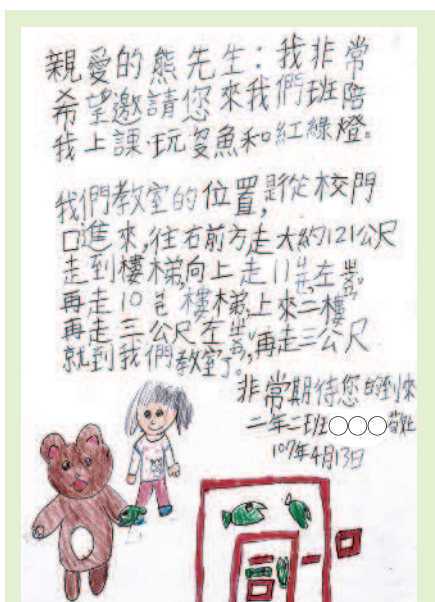 親愛的熊先生：我非常
希望邀請您來我們班陪
我上課、玩
魚和紅綠燈。
我們教室的位置，是從校門
口進來，往右前方走大約121公尺
走到樓梯，向上走11
，左
。
再走10
樓梯，上來二樓
再走三公尺左
，再走三公尺
就到我們教室了。
非常期待您的到來
二年二班○○○敬
107年4月13日